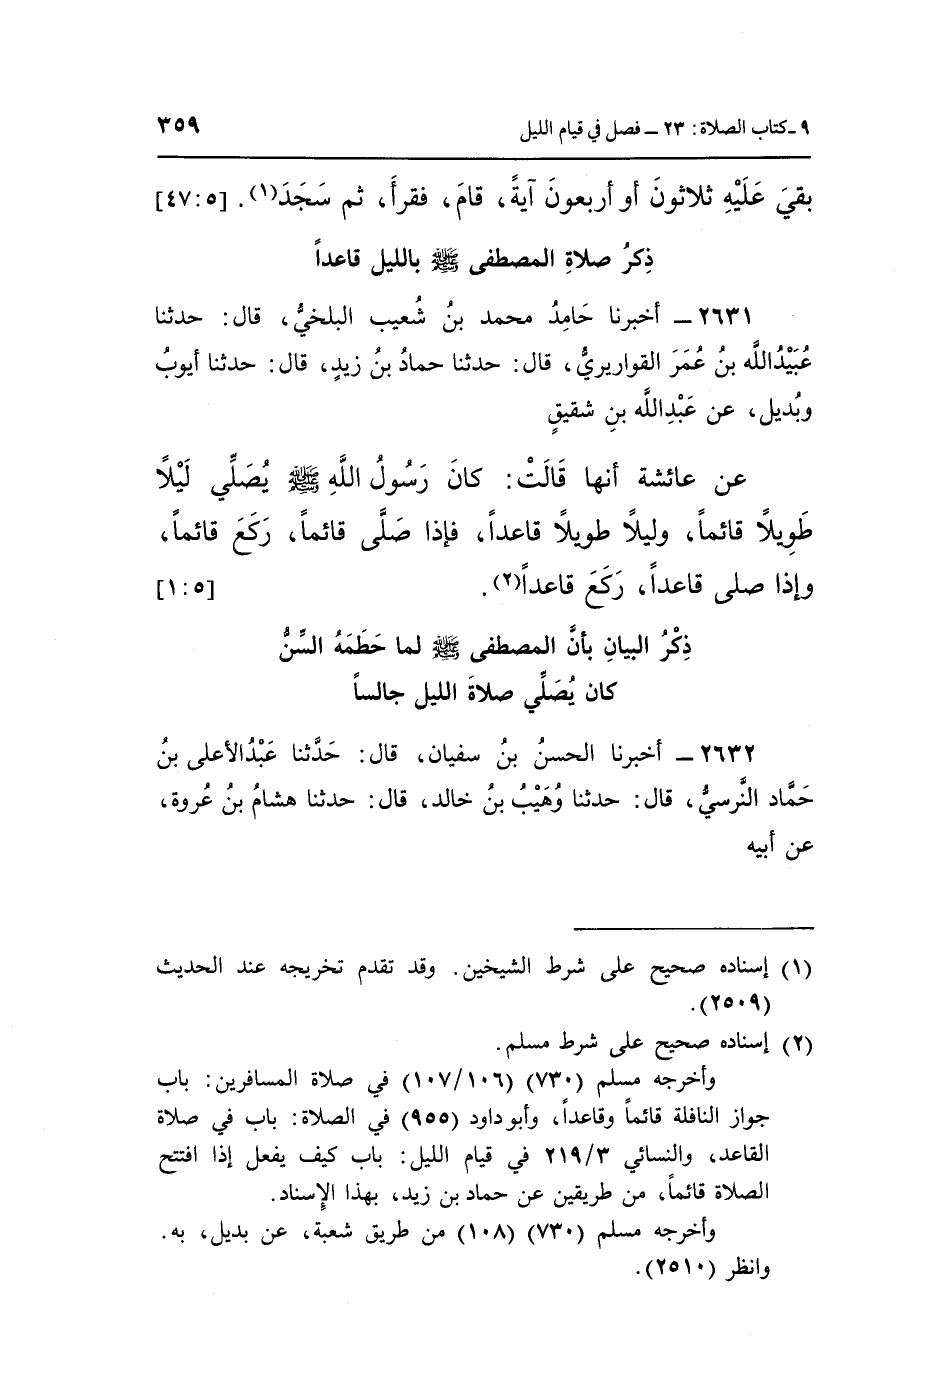 ٩ـ كتاب الصلاة: ٢٣ ــ فصل في قيام الليل ٣٥٩
بقيَ عَلَيْهِ ثلاثونَ أو أربعونَ آيةً، قامَ، فقرأَ، ثم سَجَدَ(١). [٤٧:٥]
ذِكرُ صلاةِ المصطفى ﷺ بالليل قاعداً
٢٦٣١ ــ أخبرنا حَامِدُ محمد بنُ شُعيب البلخيُّ، قال: حدثنا
عُبَيْدُاللَّه بنُ عُمَرَ القواريريُّ، قال: حدثنا حمادُ بنُ زيدٍ، قال: حدثنا أيوبُ
وبُديل، عن عَبْدِاللَّه بنِ شقيقٍ
عن عائشة أنها قَالَتْ: كانَ رَسُولُ اللَّهِ ﷺ يُصَلِّي لَيْلًا
طَوِيلًا قائماً، وليلًا طويلًا قاعداً، فإذا صَلَّى قائماً، رَكَعَ قائماً،
وإذا صلى قاعداً، رَكَعَ قاعداً(٢). [١:٥]
ذِكْرُ البيانِ بأنَّ المصطفى ﷺ لما حَطَمَهُ السِّنُّ
كان يُصَلِّي صلاةَ الليل جالساً
٢٦٣٢ ــ أخبرنا الحسنُ بنُ سفيان، قال: حَدَّثنا عَبْدُالأعلى بنُ
حَمَّاد النَّرسيُّ، قال: حدثنا وُهَيْبُ بنُ خالد، قال: حدثنا هشامُ بنُ عُروة،
عن أبيه
(١) إسناده صحيح على شرط الشيخين. وقد تقدم تخريجه عند الحديث
(٢٥٠٩).
(٢) إسناده صحيح على شرط مسلم.
وأخرجه مسلم (٧٣٠) (١٠٧/١٠٦) في صلاة المسافرين: باب
جواز النافلة قائماً وقاعداً، وأبو داود (٩٥٥) في الصلاة: باب في صلاة
القاعد، والنسائي ٢١٩/٣ في قيام الليل: باب كيف يفعل إذا افتتح
الصلاة قائماً، من طريقين عن حماد بن زيد، بهذا الإِسناد.
وأخرجه مسلم (٧٣٠) (١٠٨) من طريق شعبة، عن بديل، به.
وانظر (٢٥١٠).